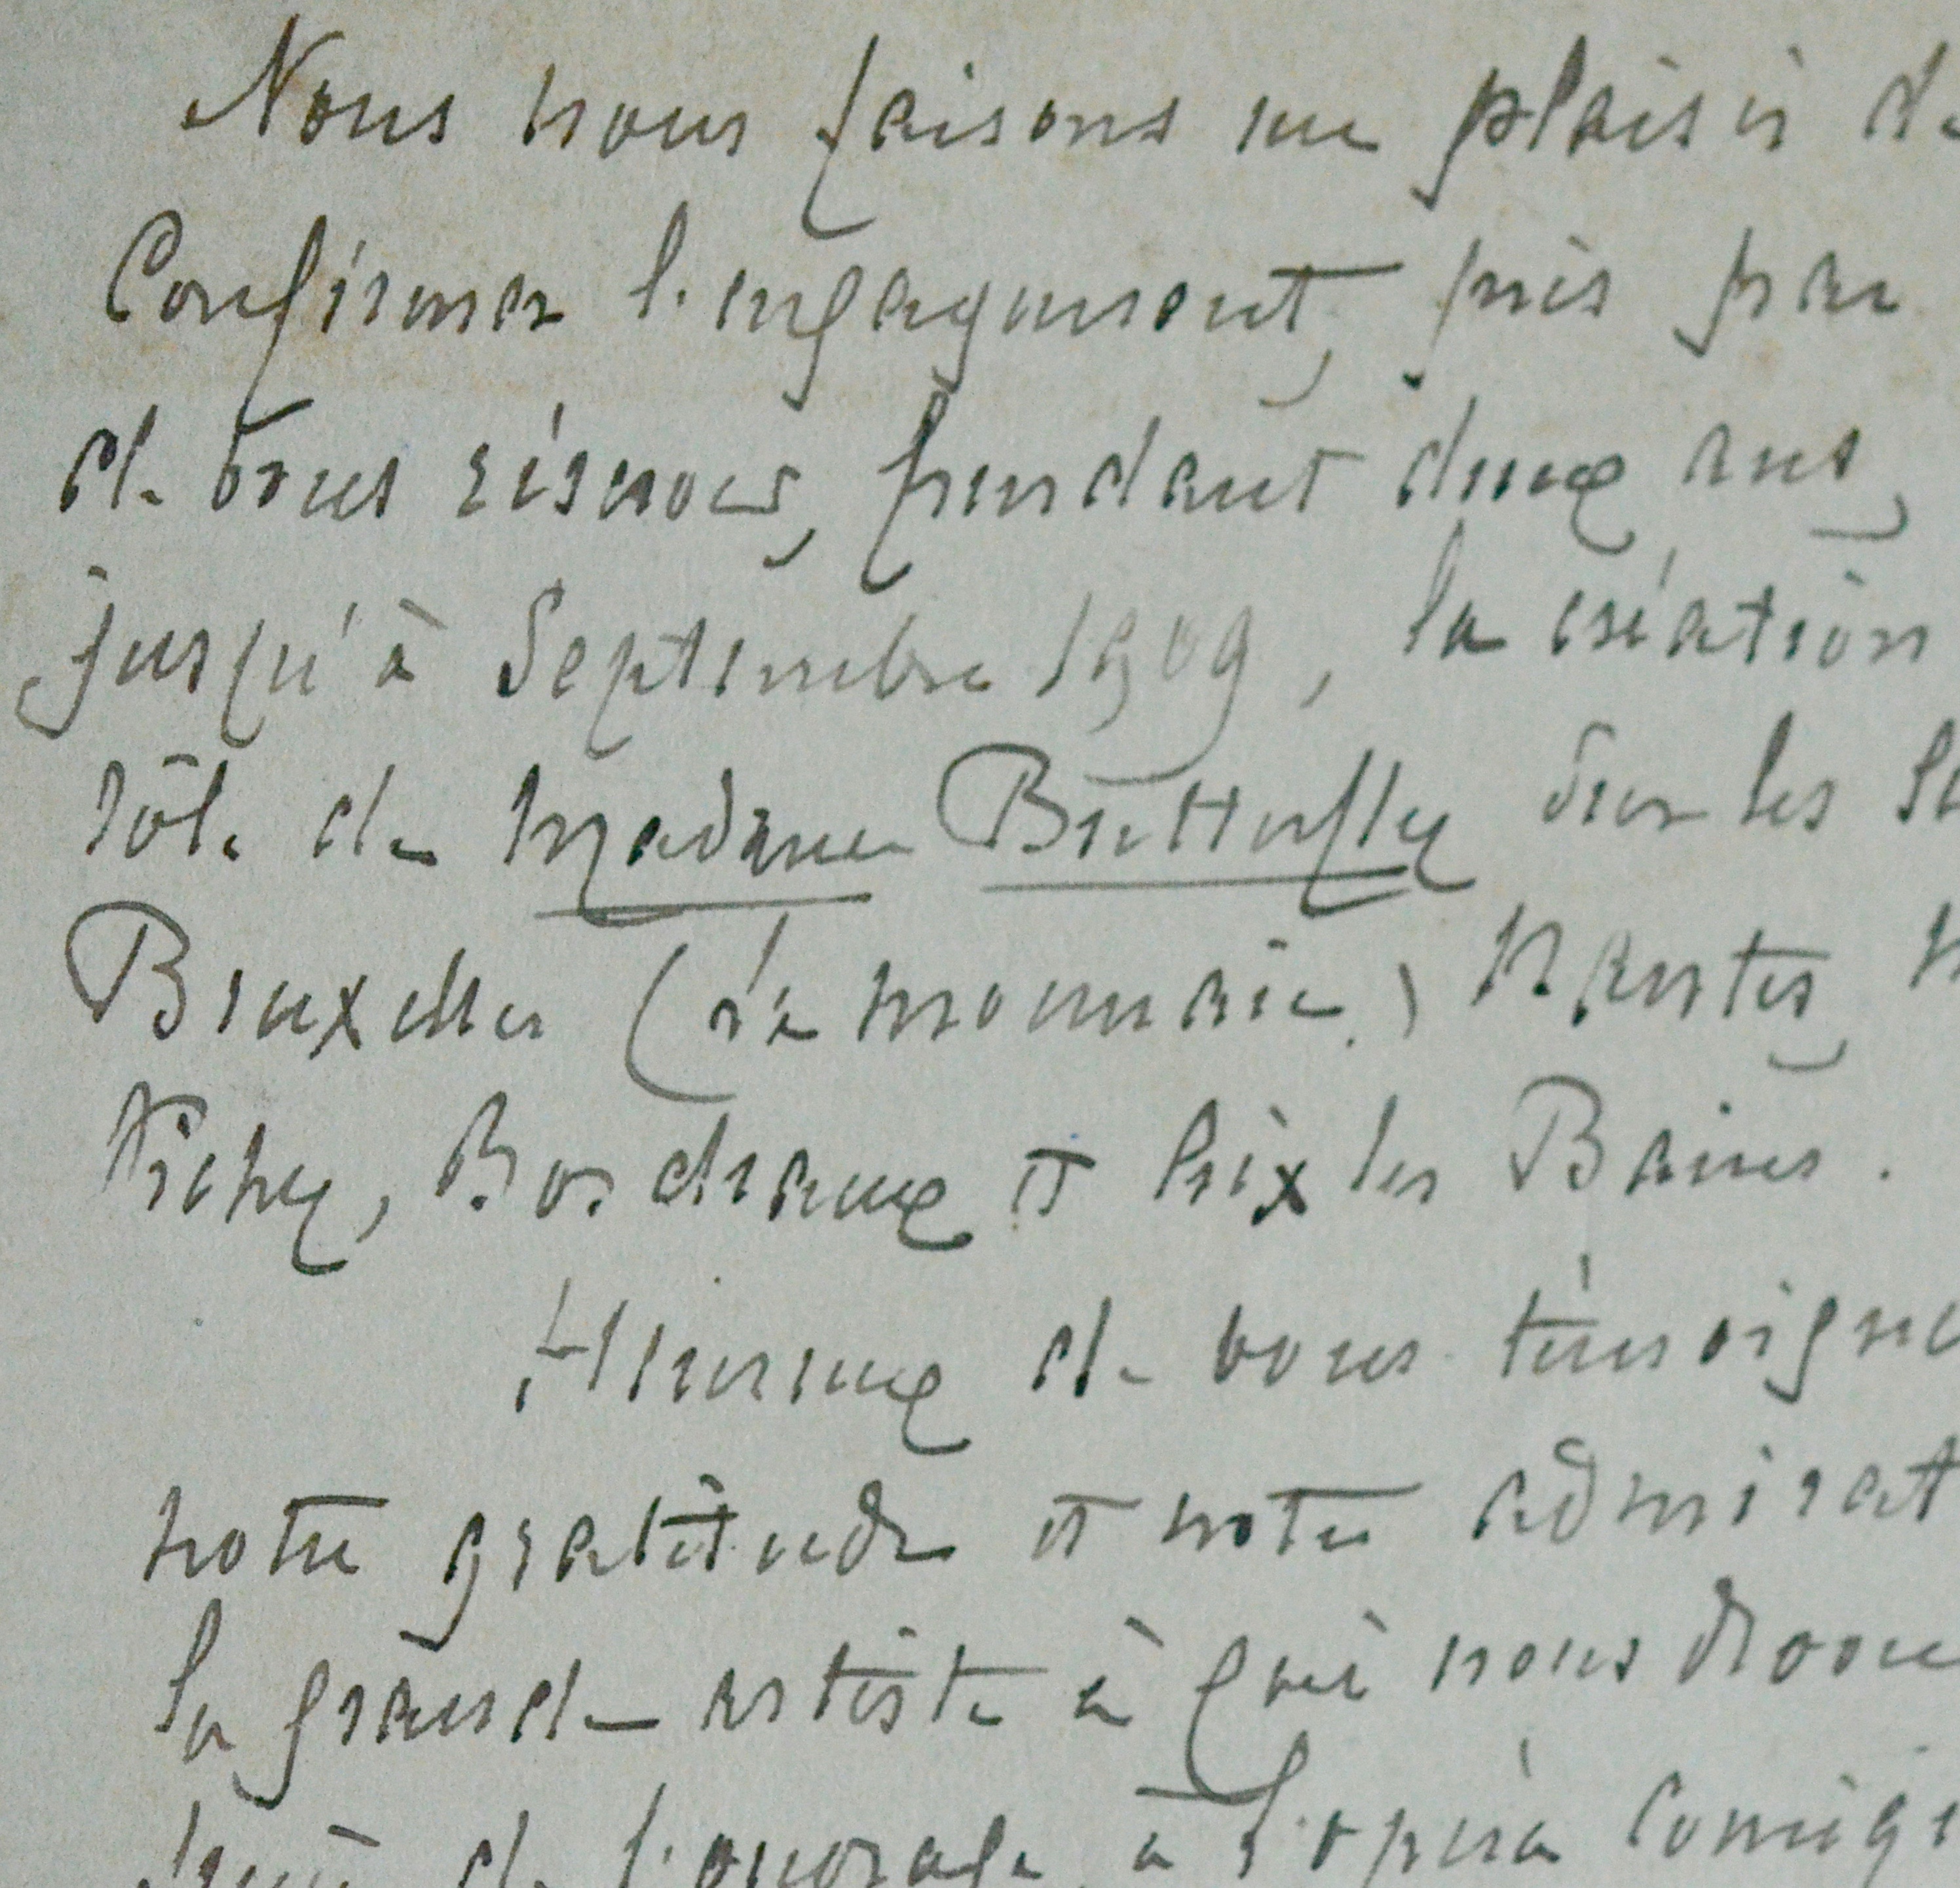 Nous nous faisons un plaisir de
Confirmer l'engagement, pris par
de vous réserver, pendant deux ans,
jusqu'à Septembre 1909, la création
rôle de Madame Butterfly sur les
Bruxelles (la monnaie) Nantes,
Vichy, Bordeaux et Aix les Bains.
Heureux de vous
notre gratitude et notre
la grande artiste à qui nous
de l'ouvrage, à l'opéra